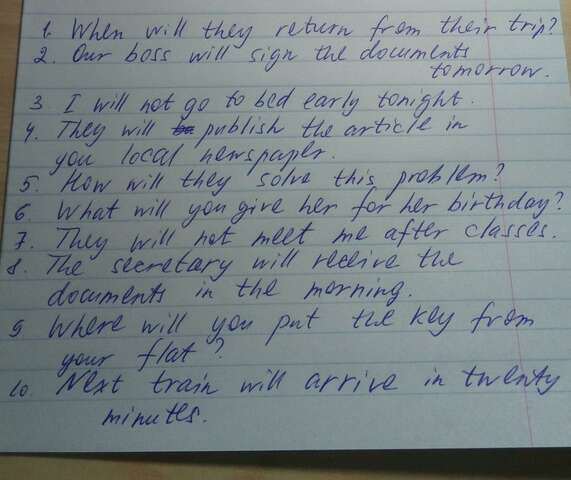 1. When will they return from their trip?
2. Our boss will sign the documents
tomorrow.
3 I will not go to bed early tonight.
4. They will publish the article in
you local newspaper.
5. How will they solve this problem?
6. What will you give her for her birthday?
7. They will not meet me after classes.
8. The secretary will receive the
documents in the morning.
9 Where will you put the key from
your flat?
10. Next train will arrive in twenty
minutes.